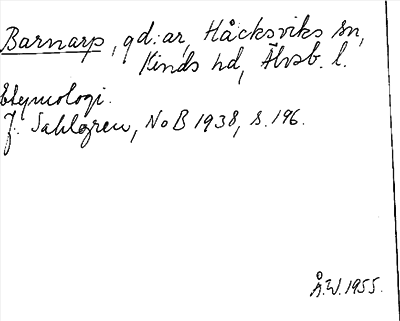 Barnarp, gd:ar, Håcksviks sn,
Kinds hd, Älvsb. l.
Etymologi.
J. Sahlgren, NoB 1938, s. 196.
Å.W. 1955.